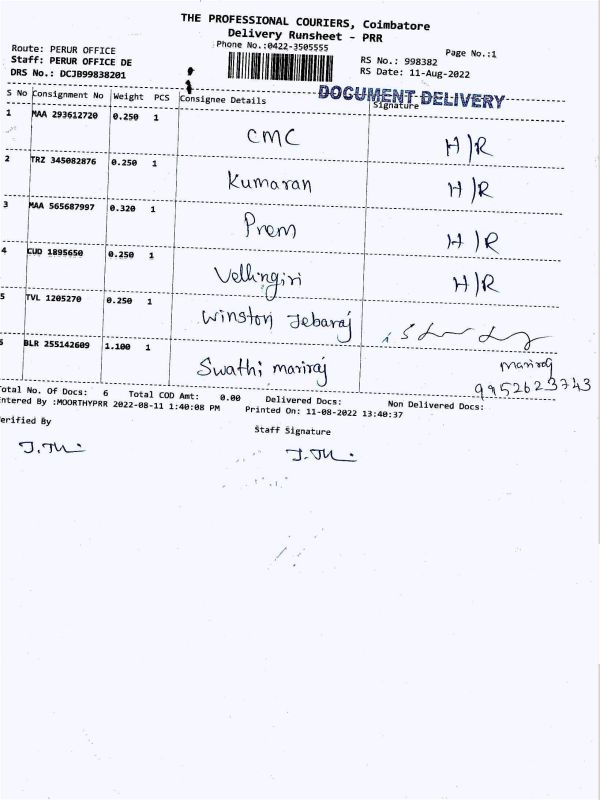 THE PROFESSIONAL COURIERS, Coimbatore
Delivery Runsheet - PRR
Phone No.:0422-3505555
Page No.:1
Route: PERUR OFFICE
Staff: PERUR OFFICE DE
RS No.: 998382
DRS No.: DCJB99838201
RS Date: 11-Aug-2022
DOCUMENT DELIVERY
S No Consignment No Weight PCS Consignee Details Signature
1 MAA 293612720 0.250 1 CMC H/R
2 TRZ 345082876 0.250 1 Kumaran H/R
3 MAA 565687997 0.320 1 Prem H/R
4 CUD 1895650 0.250 1 Vellingiri H/R
5 TVL 1205270 0.250 1 Winston Jebaraj
6 BLR 255142609 1.100 1 Swathi mariraj mariraj
9952623743
Total No. Of Docs: 6 Total COD Amt: 0.00 Delivered Docs: Non Delivered Docs:
Entered By :MOORTHYPRR 2022-08-11 1:40:08 PM Printed On: 11-08-2022 13:40:37
erified By
Staff Signature